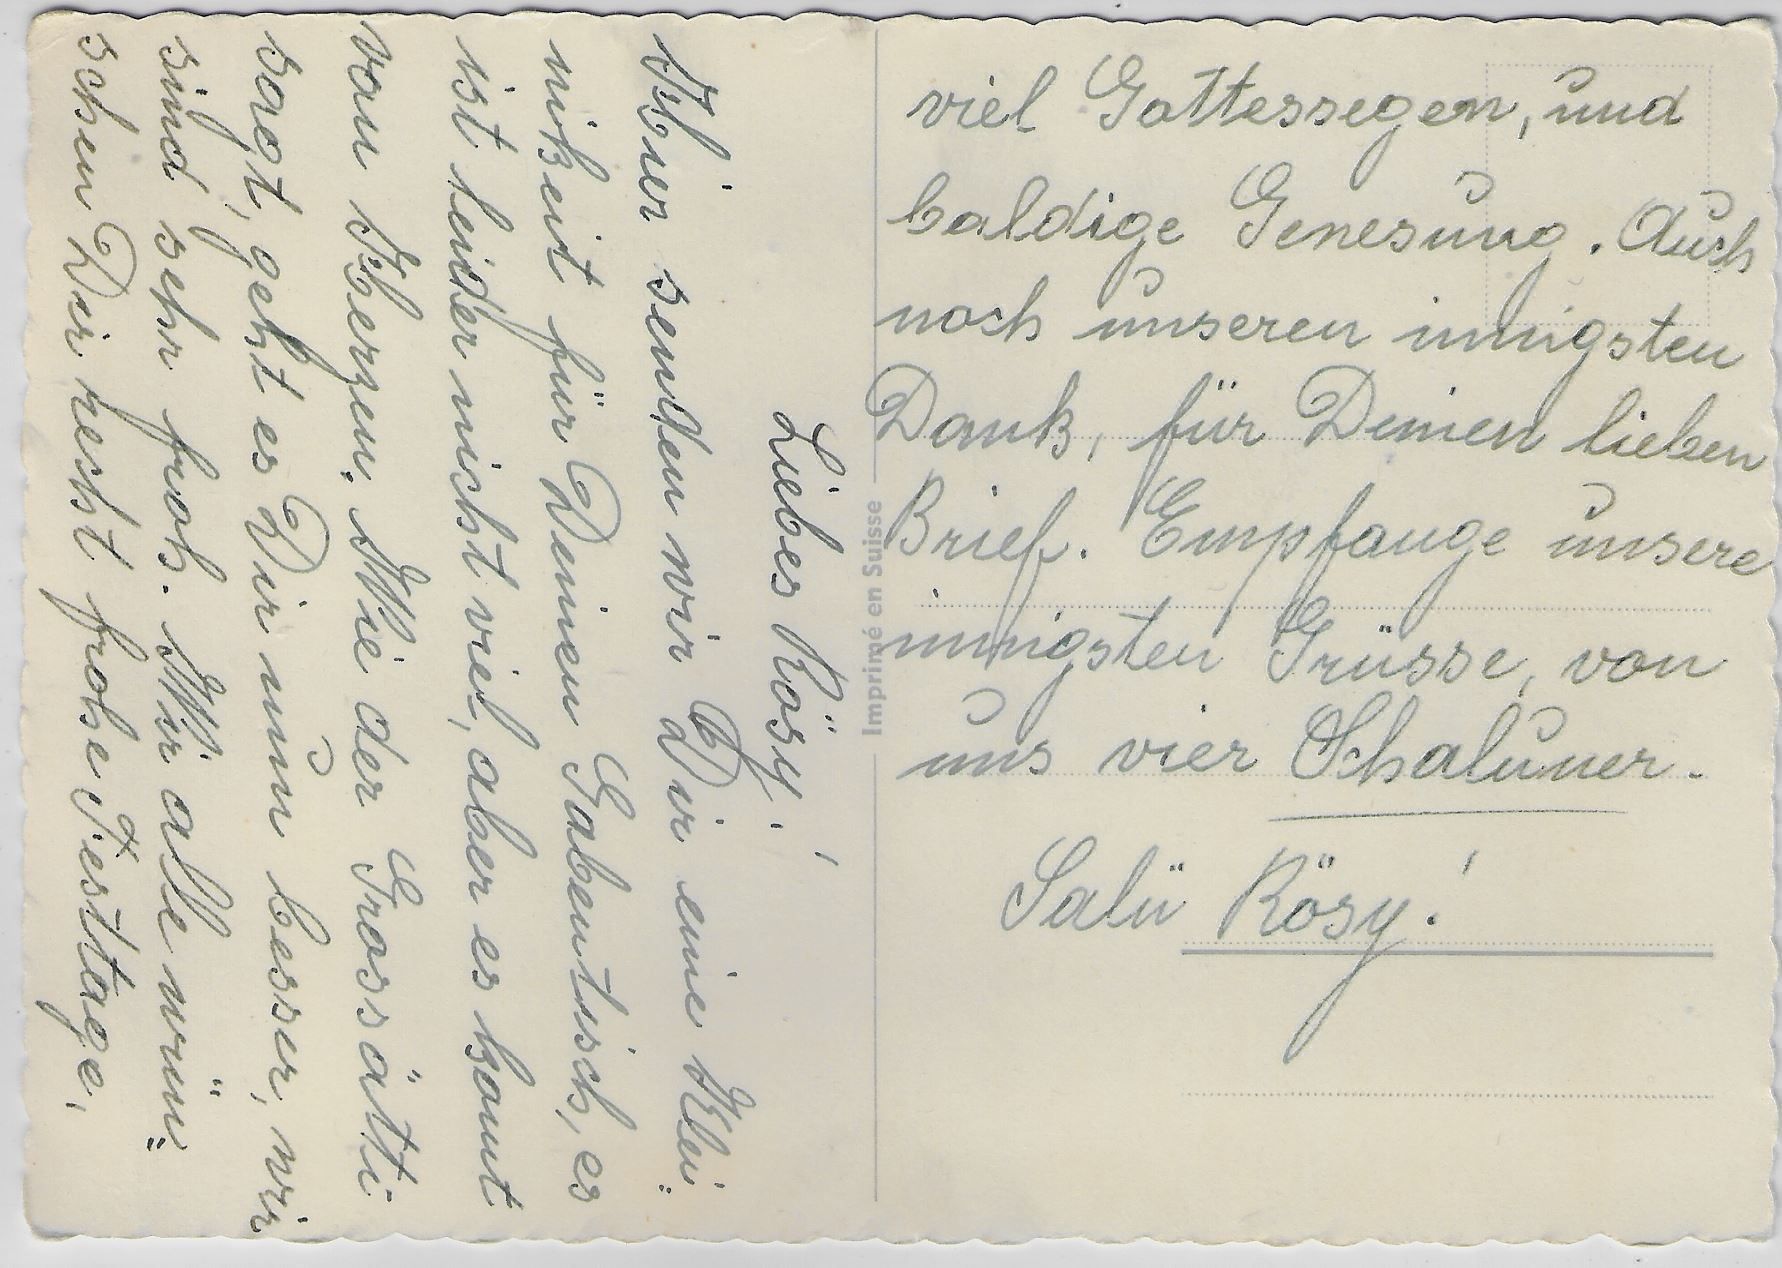 Liebes Rösy!
Hier senden wir Dir eine Klei-
nikeit für Deinen Gabentisch, es
ist leider nicht viel, aber es komt
von Herzen. Wie der Grossätti
sagt, geht es Dir nun besser, wir
sind sehr froh. Wir alle wün=
schen Dir recht frohe Festtage,
viel Gottessegen, und
baldige Genesung. Auch
noch unseren innigsten
Dank, für Deinen lieben
Brief. Empfange unsere
innigsten Grüsse, von
uns vier Schaluner.
Salü Rösy!
Imprimé en Suisse